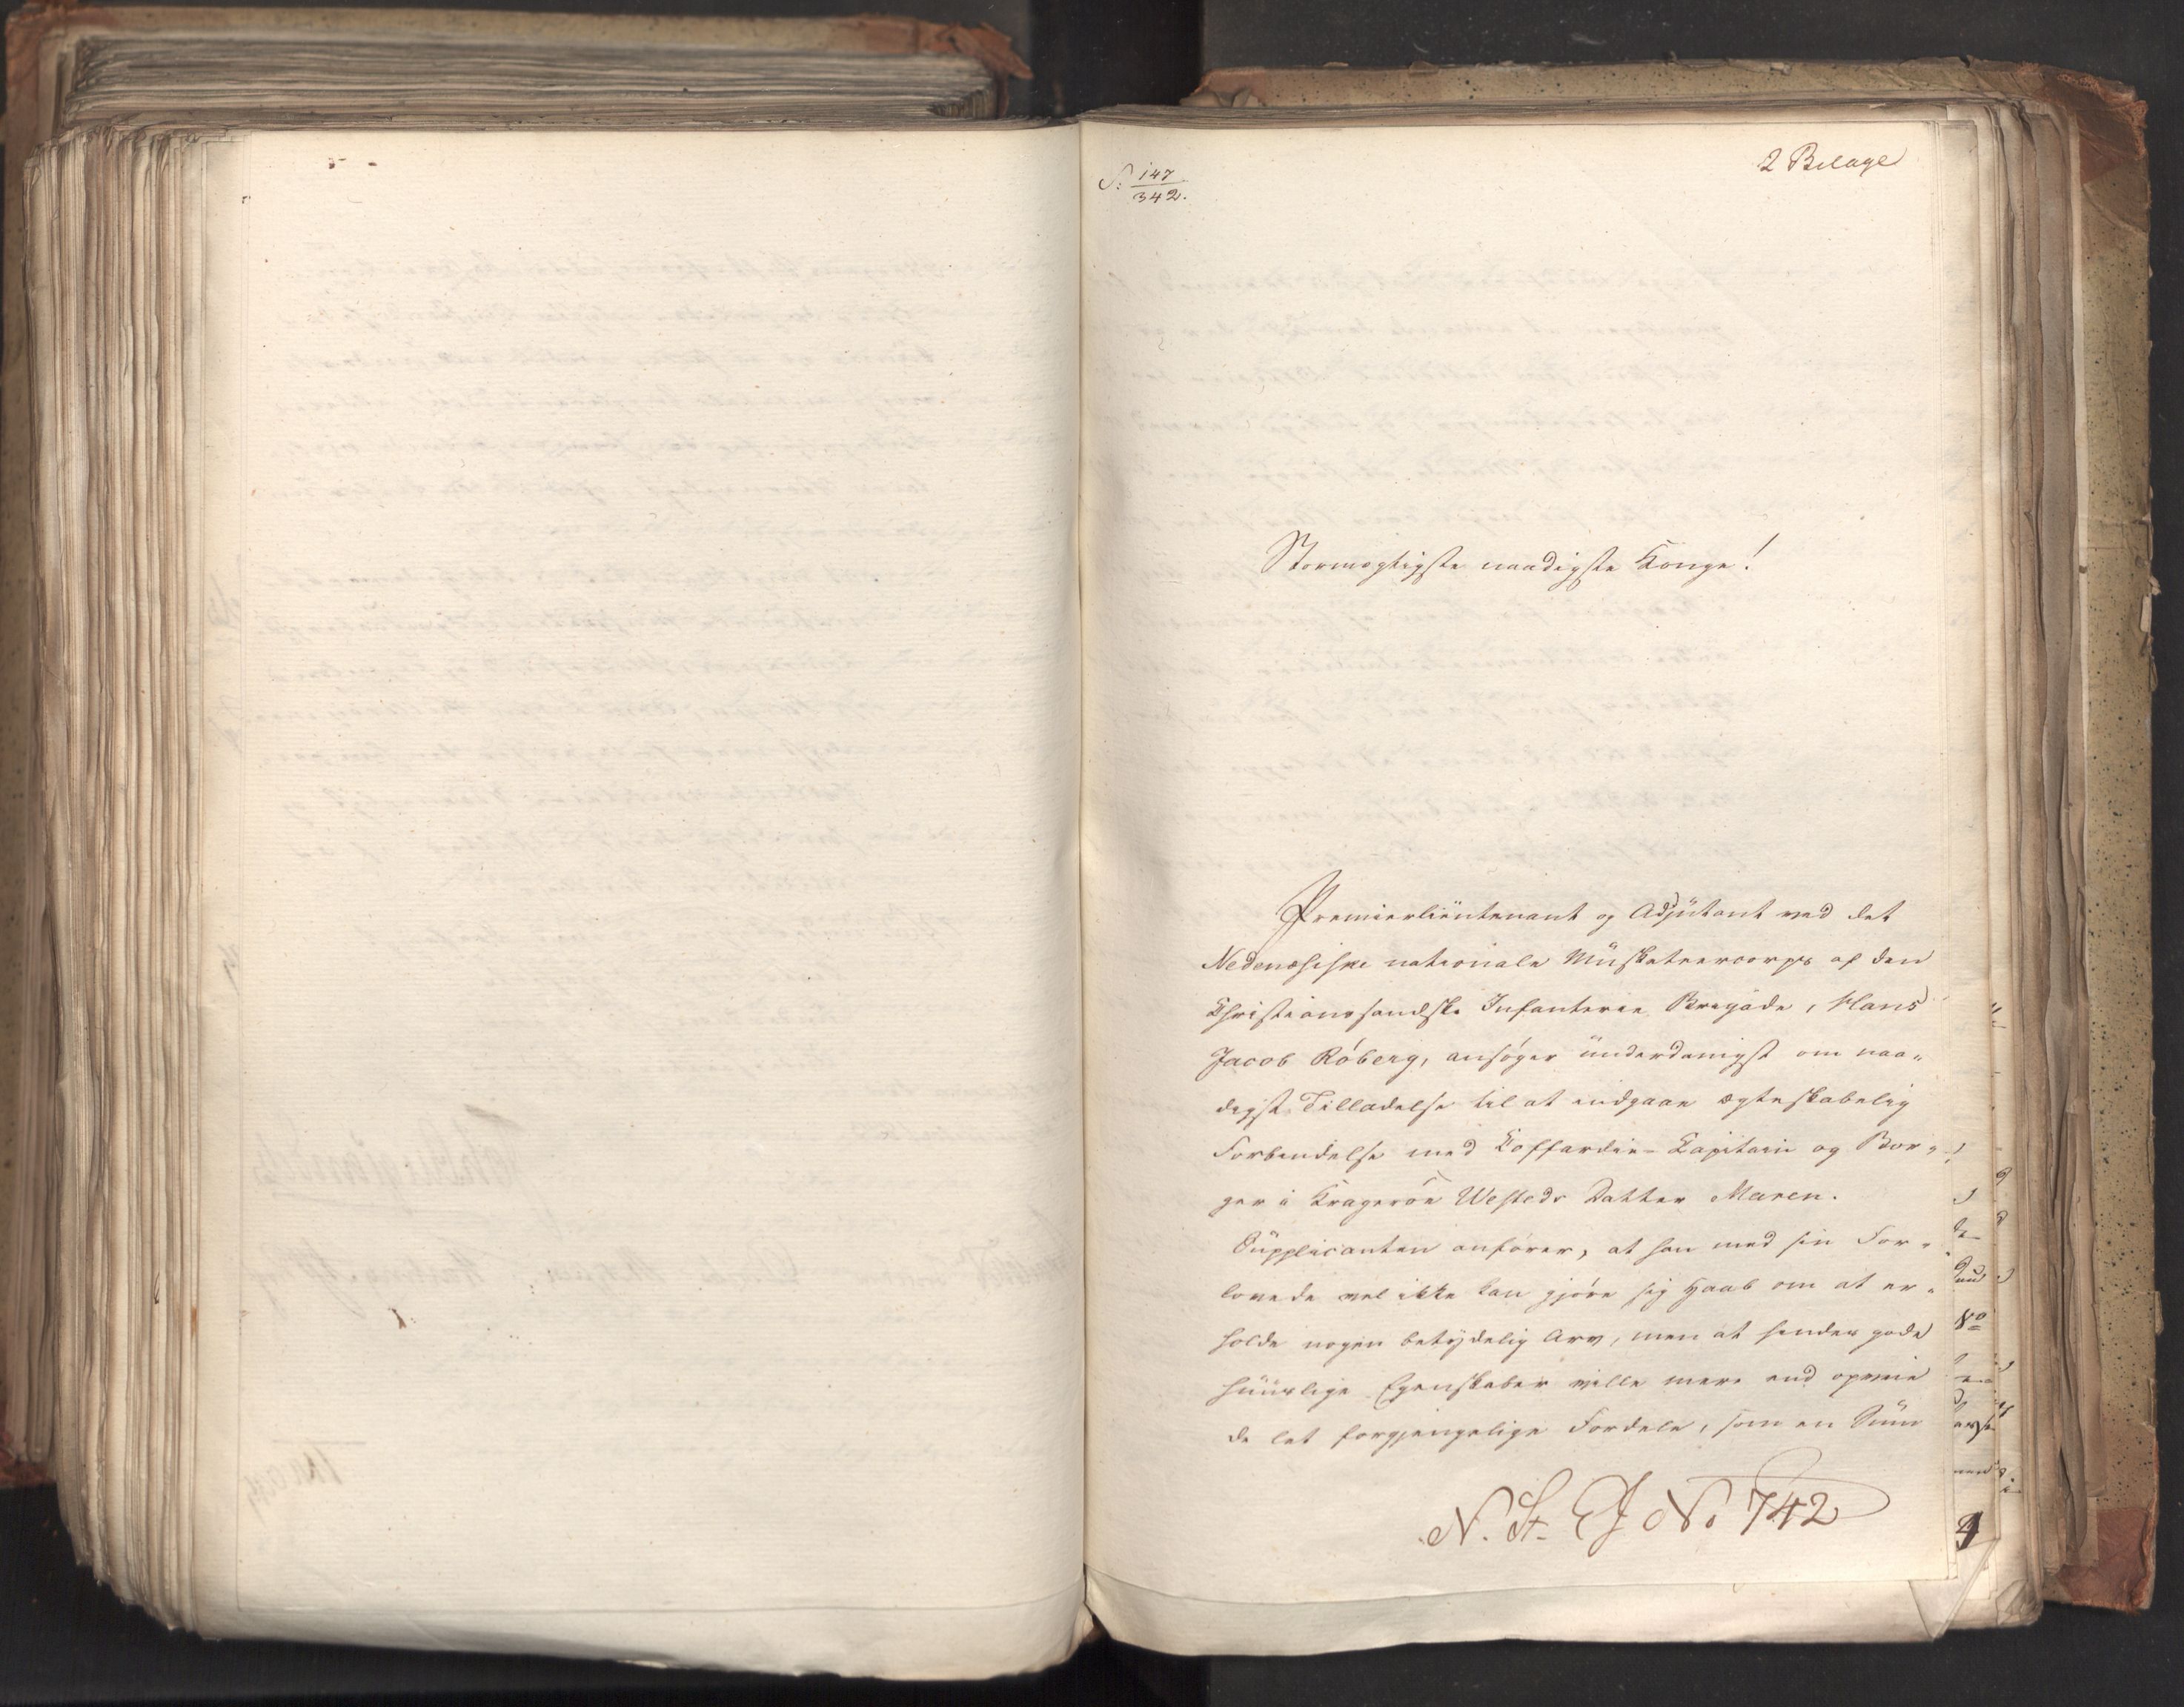 S: 147/342.
2 Bilage
Stormægtigste naadigste Konge!
Premierlieutenant og Adjutant ved det
Nedenæsiske nationale Musketeercorps af den
Christiansandske Infanterie Brigade, Hans
Jacob Röberg, ansøger underdanigst om naa-
digst Tilladelse til at indgaae ægteskabelig
Forbindelse med Coffardie-Capitain og Bor-
ger i Krageröe Westeds Datter Maren.
Supplicanten anfører, at han med sin For-
lovede vel ikke kan gjøre sig Haab om at er-
holde nogen betydelig Arv, men at hendes gode
huuslige Egenskaber ville mere end opveie
de let forgjængelige Fordele, som en Sum
N. St. E J No 742